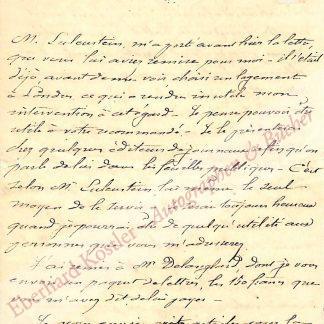 M. Lilenstein, m'a porté avant hier la lettre
que vous lui aviez remise pour moi - il était
déjà, avant de me voir choisi un logement
à Londres ce qui a rendu inutile mon
intervention à cet égard. Je pense pouvoir être
utile à votre recommandé - Je le présenterai
chez quelques éditeurs de journaux afin qu'on
parle de lui dans les feuilles publiques - C'est
selon Mr Lilenstein lui même, le seul
moyen de le servir - je serai toujours heureux
quand je pourrai être de quelqu'utilité aux
personnes que vous m'adresserez.
J'ai remis à Mr Delanglard dont je vous
envoie un paquet de lettres, les 130 francs que
vous m'avez dit de lui payer -
Eberhard Köstler - Autographen & Bücher